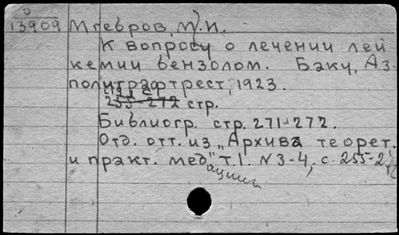 О
13909 Мгевров, М. И.
К вопросу о лечении лей
кемии бензолом. Баку, Аз-
политграфтрест, 1923.
[19] с.
255-272 стр.
Библиогр. стр. 271-272.
Отд. отт. из „Архива теорет.
и практ. мед." т. I. N3-4, с. 255-2
ицины